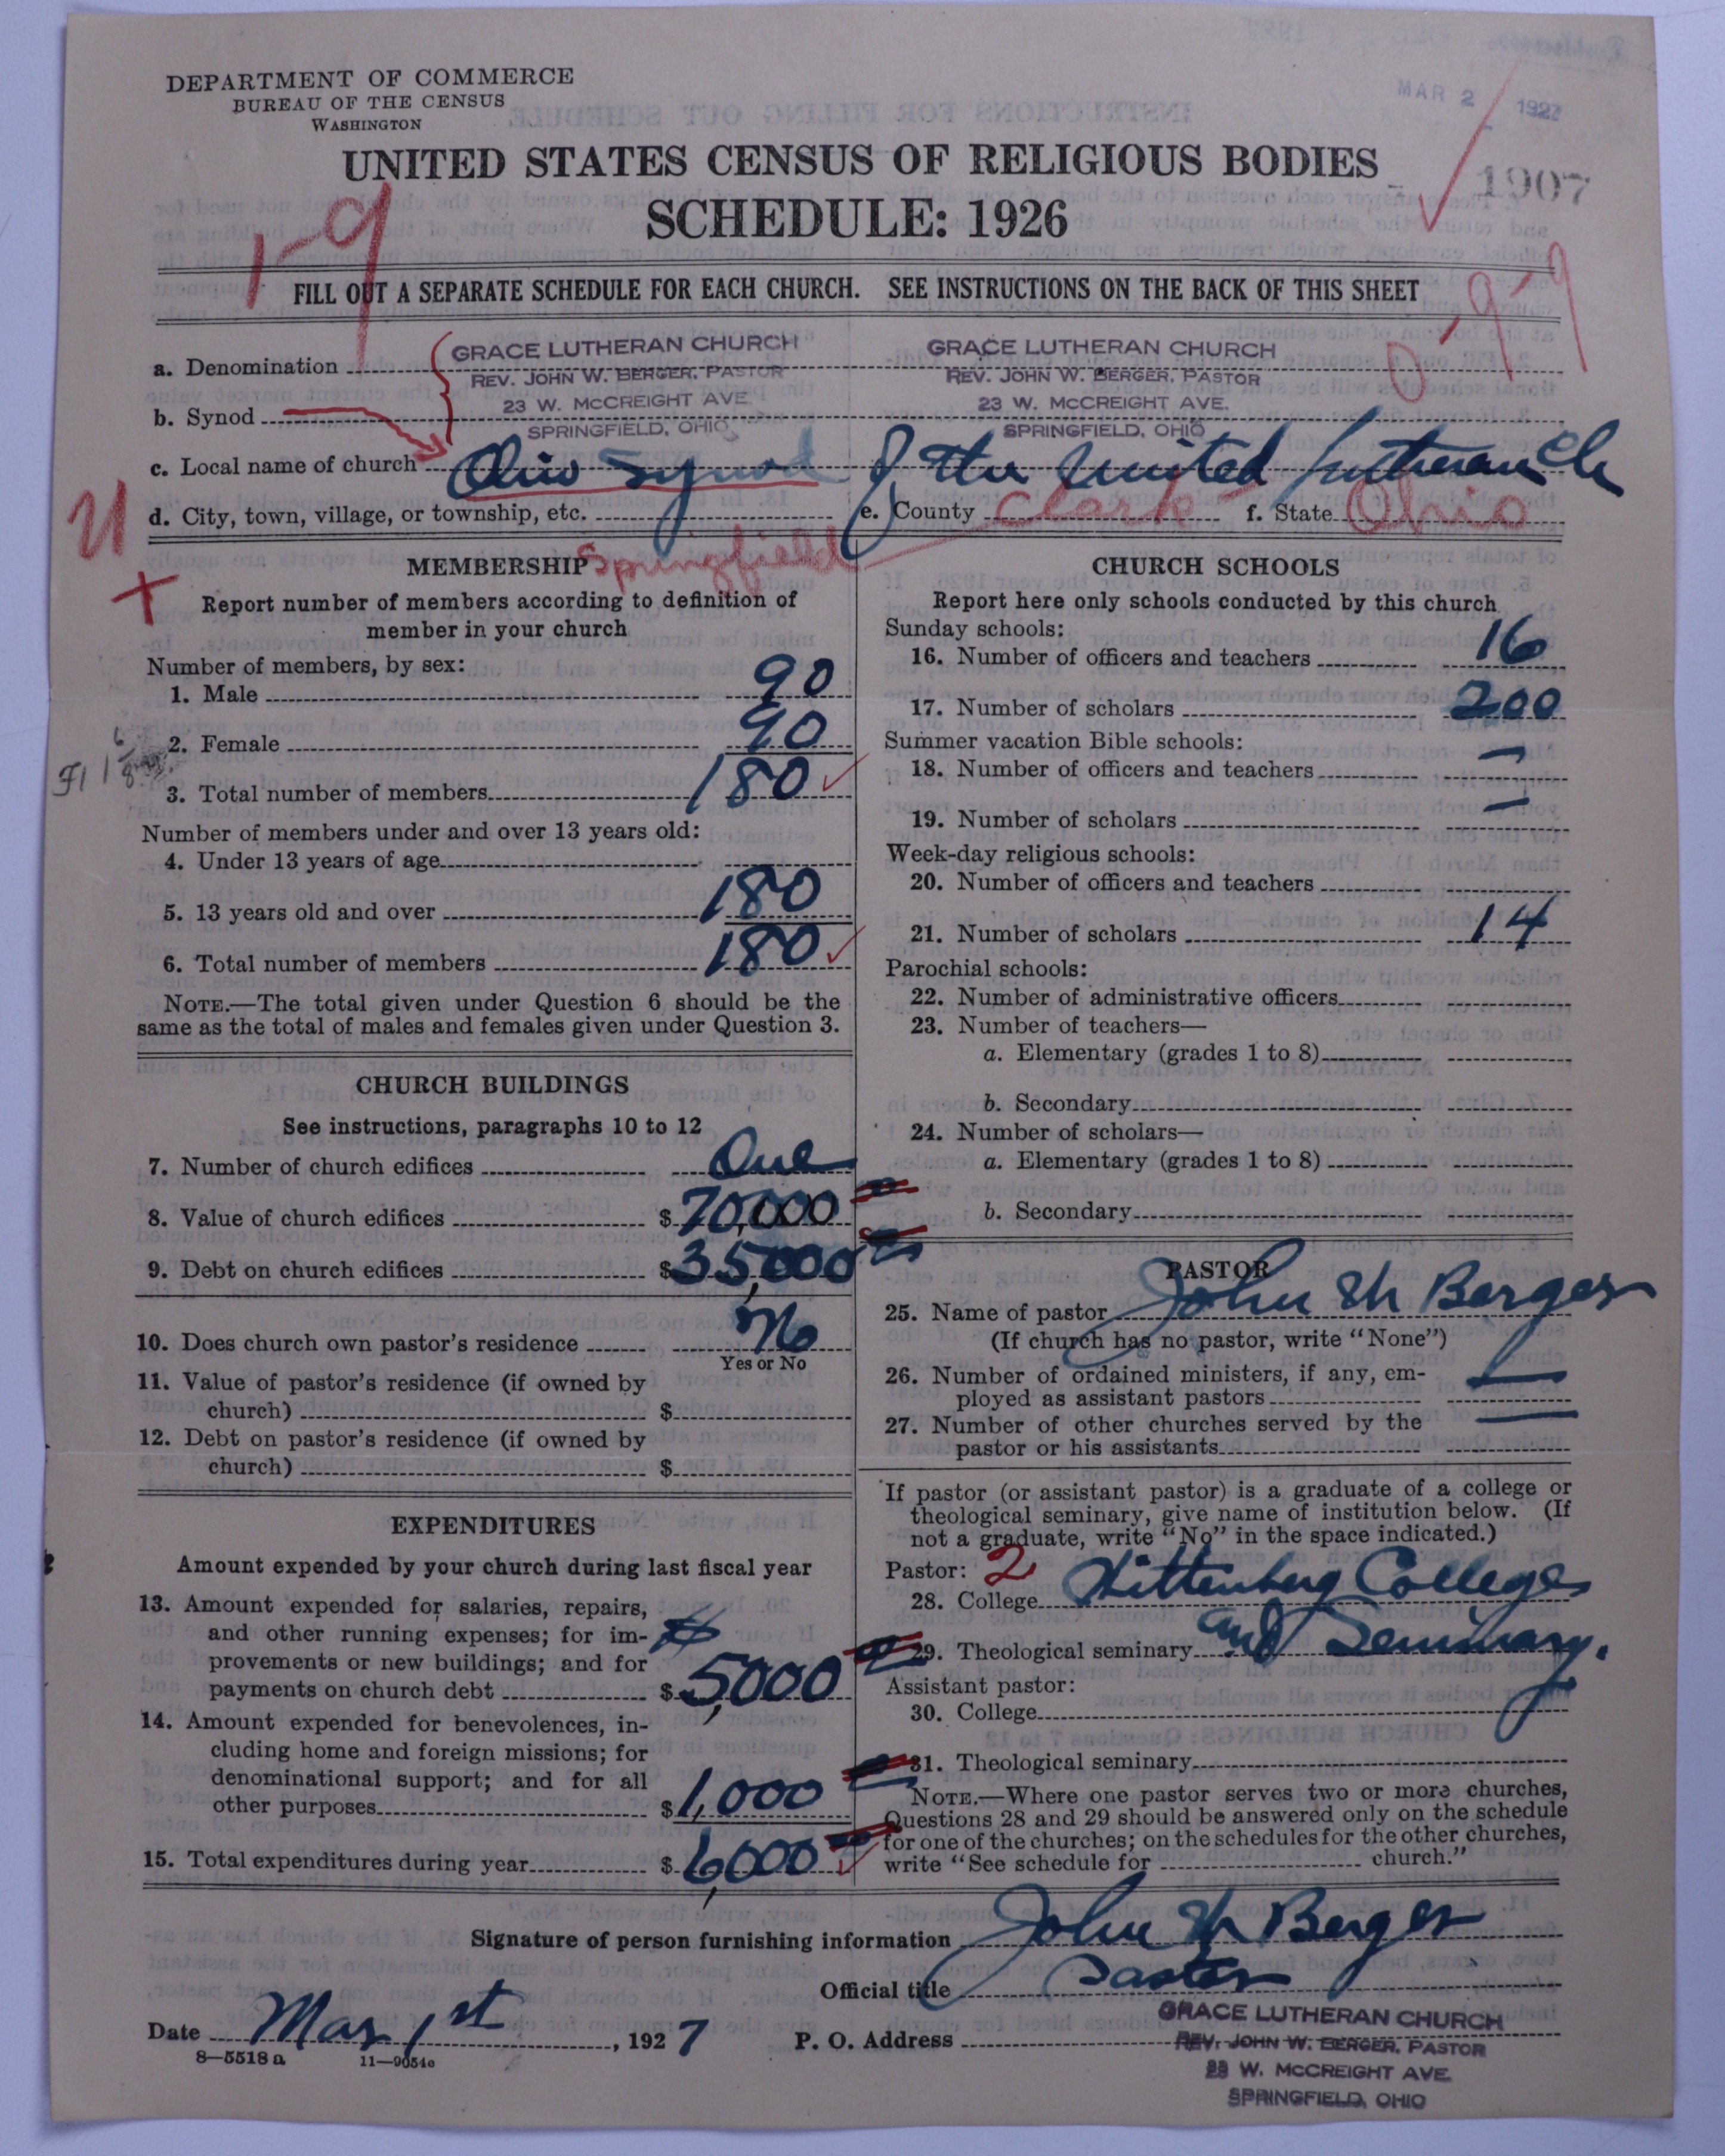 DEPARTMENT OF COMMERCE
BUREAU OF THE CENSUS
WASHINGTON
MAR 2 1927
UNITED STATES CENSUS OF RELIGIOUS BODIES
1907
SCHEDULE: 1926
1-9
0-9-9
FILL OUT A SEPARATE SCHEDULE FOR EACH CHURCH. SEE INSTRUCTIONS ON THE BACK OF THIS SHEET
a. Denomination
GRACE LUTHERAN CHURCH
REV. JOHN W. BERGER, PASTOR
23 W. MCCREIGHT AVE.
SPRINGFIELD, OHIO
GRACE LUTHERAN CHURCH
REV. JOHN W. BERGER, PASTOR
23 W. MCCREIGHT AVE.
SPRINGFIELD, OHIO
b. Synod
c. Local name of church Ohio Synod of the United Lutheran Ch
d. City, town, village, or township, etc. Springfield e. County Clark f. State Ohio
MEMBERSHIP
Report number of members according to definition of
member in your church
Number of members, by sex:
1. Male 90
2. Female 90
3. Total number of members 180
Number of members under and over 13 years old:
4. Under 13 years of age
5. 13 years old and over 180
6. Total number of members 180
NOTE.—The total given under Question 6 should be the
same as the total of males and females given under Question 3.
CHURCH BUILDINGS
See instructions, paragraphs 10 to 12
7. Number of church edifices One
8. Value of church edifices $70,000
9. Debt on church edifices $35,000
10. Does church own pastor's residence No
Yes or No
11. Value of pastor's residence (if owned by
church) $
12. Debt on pastor's residence (if owned by
church) $
EXPENDITURES
Amount expended by your church during last fiscal year
13. Amount expended for salaries, repairs,
and other running expenses; for im-
provements or new buildings; and for
payments on church debt $5,000
14. Amount expended for benevolences, in-
cluding home and foreign missions; for
denominational support; and for all
other purposes $1,000
15. Total expenditures during year $6,000
CHURCH SCHOOLS
Report here only schools conducted by this church
Sunday schools:
16. Number of officers and teachers 16
17. Number of scholars 200
Summer vacation Bible schools:
18. Number of officers and teachers —
19. Number of scholars —
Week-day religious schools:
20. Number of officers and teachers
21. Number of scholars 14
Parochial schools:
22. Number of administrative officers
23. Number of teachers—
a. Elementary (grades 1 to 8)
b. Secondary
24. Number of scholars—
a. Elementary (grades 1 to 8)
b. Secondary
PASTOR
25. Name of pastor John W Berger
(If church has no pastor, write "None")
26. Number of ordained ministers, if any, em-
ployed as assistant pastors —
27. Number of other churches served by the
pastor or his assistants —
If pastor (or assistant pastor) is a graduate of a college or
theological seminary, give name of institution below. (If
not a graduate, write "No" in the space indicated.)
Pastor: 2
28. College Wittenberg College
29. Theological seminary and Seminary.
Assistant pastor:
30. College
31. Theological seminary
NOTE.—Where one pastor serves two or more churches,
Questions 28 and 29 should be answered only on the schedule
for one of the churches; on the schedules for the other churches,
write "See schedule for church."
Signature of person furnishing information John W Berger
Official title Pastor
Date Mar 1st, 1927 P. O. Address
GRACE LUTHERAN CHURCH
REV. JOHN W. BERGER, PASTOR
23 W. MCCREIGHT AVE.
SPRINGFIELD, OHIO
8—5518 a 11—9051c